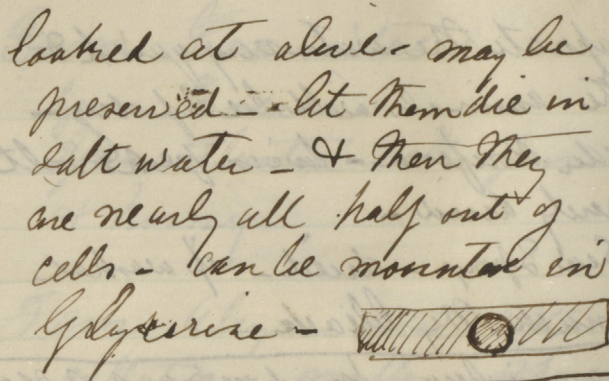 looked at alive - may be
preserved - - let them die in
salt water - & then they
are nearly all half out of
cells - can be mounted in
Glycerine -